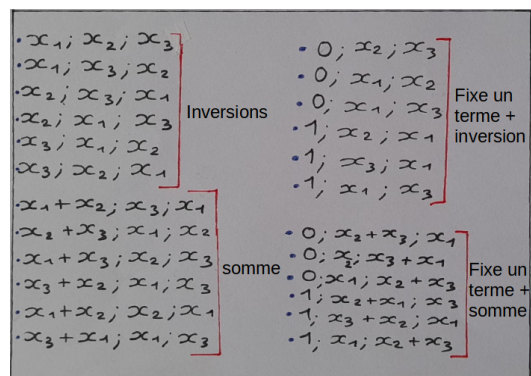 • x₁ ; x₂ ; x₃
• x₁ ; x₃ ; x₂
• x₂ ; x₃ ; x₁
• x₂ ; x₁ ; x₃
• x₃ ; x₁ ; x₂
• x₃ ; x₂ ; x₁
Inversions
• x₁ + x₂ ; x₃ ; x₁
• x₂ + x₃ ; x₁ ; x₂
• x₁ + x₃ ; x₂ ; x₃
• x₃ + x₂ ; x₁ ; x₃
• x₁ + x₂ ; x₂ ; x₁
• x₃ + x₁ ; x₁ ; x₃
somme
• 0 ; x₂ ; x₃
• 0 ; x₁ ; x₂
• 0 ; x₁ ; x₃
• 1 ; x₂ ; x₁
• 1 ; x₃ ; x₁
• 1 ; x₁ ; x₃
Fixe un
terme +
inversion
• 0 ; x₂ + x₃ ; x₁
• 0 ; x₂ ; x₃ + x₁
• 0 ; x₁ ; x₂ + x₃
• 1 ; x₂ + x₁ ; x₃
• 1 ; x₃ + x₂ ; x₁
• 1 ; x₁ ; x₂ + x₃
Fixe un
terme +
somme